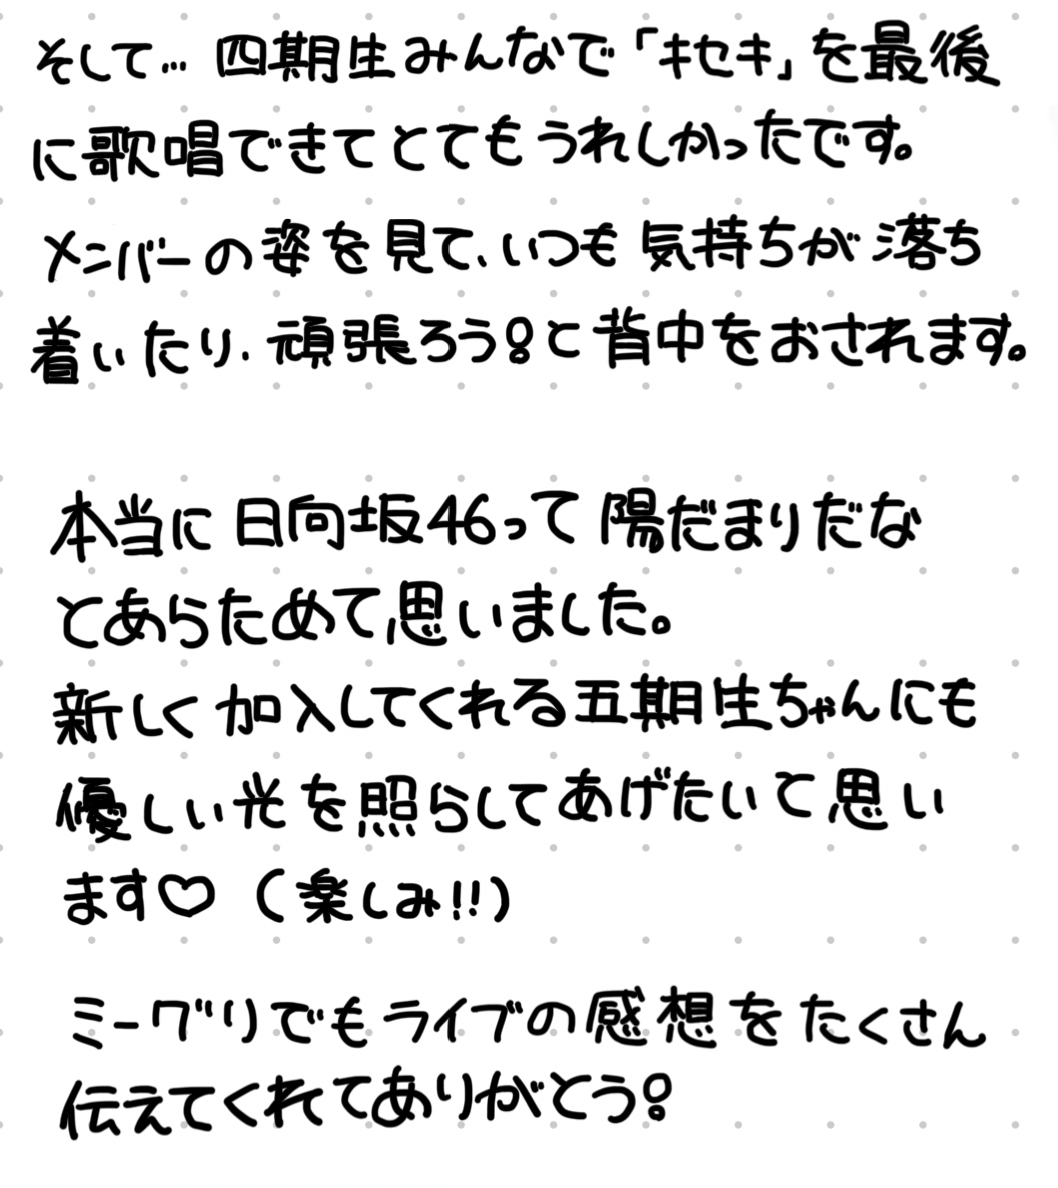 そして… 四期生みんなで「キセキ」を最後
に歌唱できてとてもうれしかったです。
メンバーの姿を見て、いつも気持ちが落ち
着いたり、頑張ろう!と背中をおされます。
本当に日向坂46って陽だまりだな
とあらためて思いました。
新しく加入してくれる五期生ちゃんにも
優しい光を照らしてあげたいと思い
ます♡(楽しみ!!)
ミーグリでもライブの感想をたくさん
伝えてくれてありがとう!